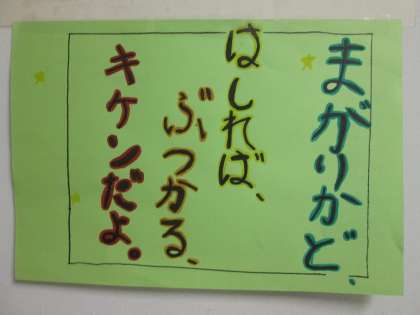 まがりかど、
はしれば、
ぶつかる、
キケンだよ。